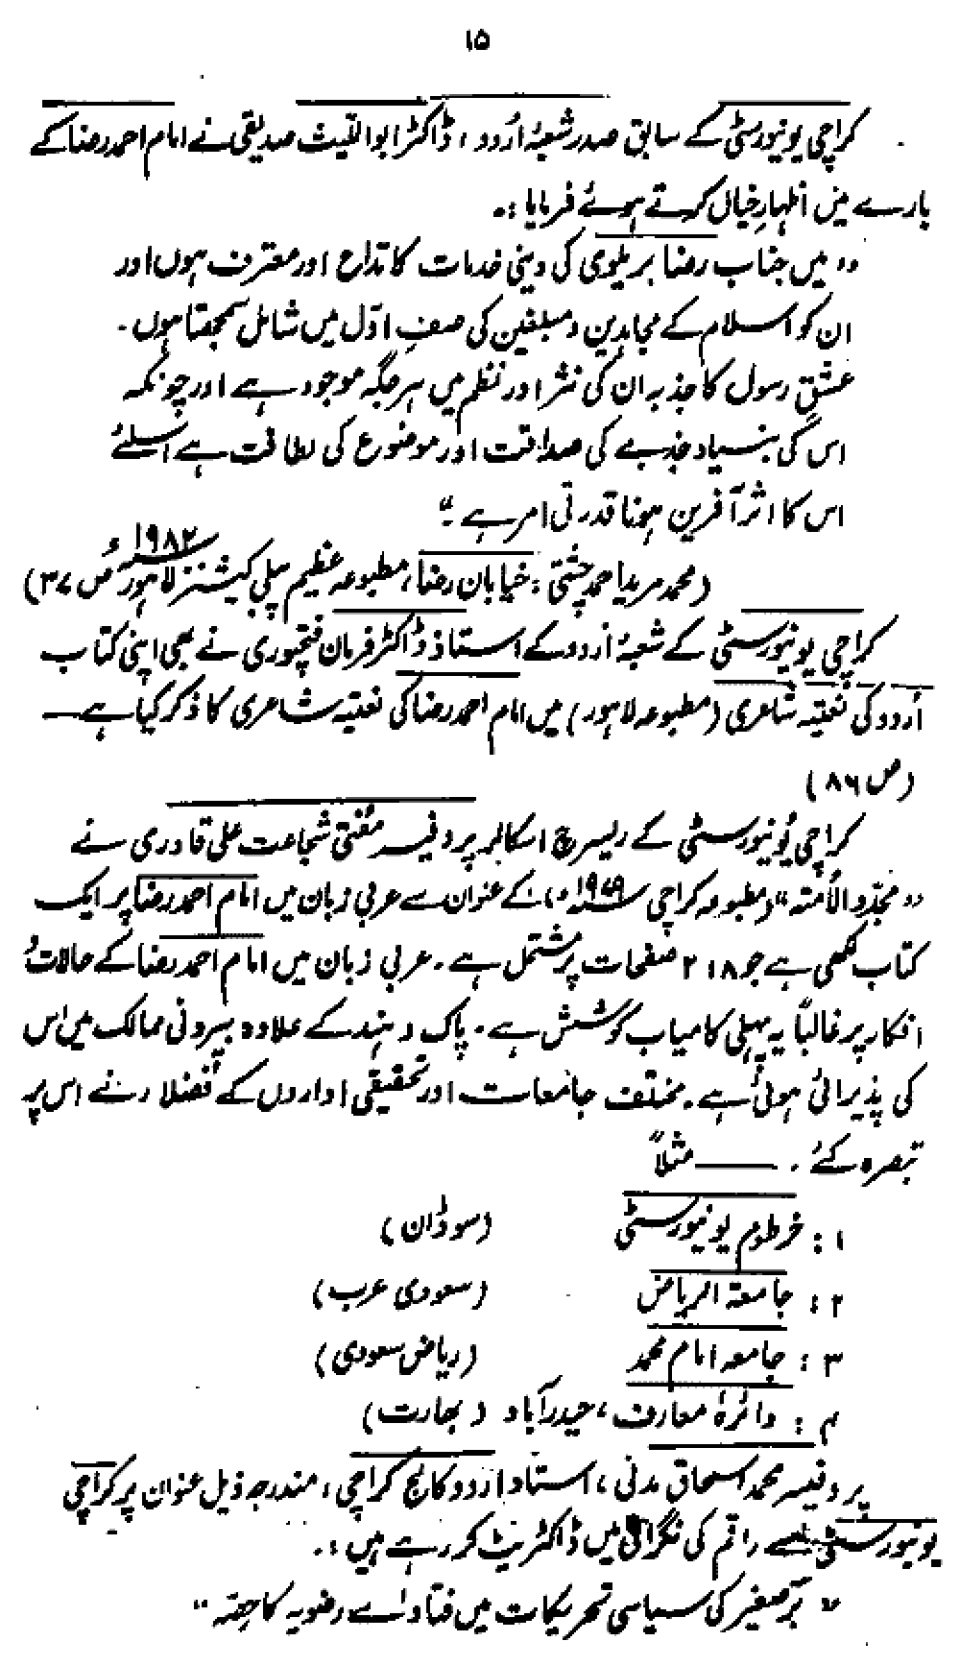 ۱۵
کراچی یونیورسٹی کے سابق صدر شعبۂ اُردو، ڈاکٹر ابواللیث صدیقی نے امام احمد رضا کے
بارے میں اظہارِ خیال کرتے ہوئے فرمایا:۔
"میں جناب رضا بریلوی کی دینی خدمات کا مداح اور معترف ہوں اور
ان کو اسلام کے مجاہدین و مبلغین کی صفِ اوّل میں شامل سمجھتا ہوں۔
عشقِ رسول کا جذبہ ان کی نثر اور نظم میں ہر جگہ موجود ہے اور چونکہ
اس کی بنیاد جذبے کی صداقت اور موضوع کی لطافت ہے اسلئے
اس کا اثر آفرین ہونا قدرتی امر ہے۔"
(محمد مرید احمد چشتی: خیابان رضا، مطبوعہ عظیم پبلی کیشنز لاہور ۱۹۸۲ء ص ۳۷)
کراچی یونیورسٹی کے شعبۂ اردو کے استاذ ڈاکٹر فرمان فتحپوری نے بھی اپنی کتاب
اُردو کی نعتیہ شاعری (مطبوعہ لاہور) میں امام احمد رضا کی نعتیہ شاعری کا ذکر کیا ہے—
(ص ۸۶)
کراچی یُونیورسٹی کے ریسرچ اسکالر پروفیسر مُفتی شجاعت علی قادری نے
"مجدّد الأمتہ" (مطبوعہ کراچی ۱۹۷۹ء) کے عنوان سے عربی زبان میں امام احمد رضا پر ایک
کتاب لکھی ہے جو ۲۱۸ صفحات پر مشتمل ہے۔ عربی زبان میں امام احمد رضا کے حالات و
افکار پر غالباً یہ پہلی کامیاب کوشش ہے۔ پاک و ہند کے علاوہ بیرونی ممالک میں اس
کی پذیرائی ہوئی ہے۔ مختلف جامعات اور تحقیقی اداروں کے فضلاء نے اس پر
تبصرہ کئے۔ —— مثلاً
۱: خرطوم یونیورسٹی (سوڈان)
۲: جامعۃ الریاض (سعودی عرب)
۳: جامعہ امام محمد (ریاض سعودی)
۴: دائرۂ معارف، حیدرآباد (بھارت)
پروفیسر محمد اسحاق مدنی، استاد اردو کالج کراچی، مندرجہ ذیل عنوان پر کراچی
یونیورسٹی سے راقم کی نگرانی میں ڈاکٹریٹ کر رہے ہیں:۔
"برّصغیر کی سیاسی تحریکات میں فتاوٰے رضویہ کا حِصّہ"